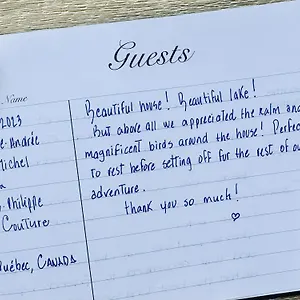 Guests
Name
2023
-Andrée
Michel
Philippe
Couture
Québec, CANADA
Beautiful house! Beautiful lake!
But above all we appreciated the kalm and
magnificent birds around the house! Perfect
to rest before setting off for the rest of ou
adventure.
Thank you so much!